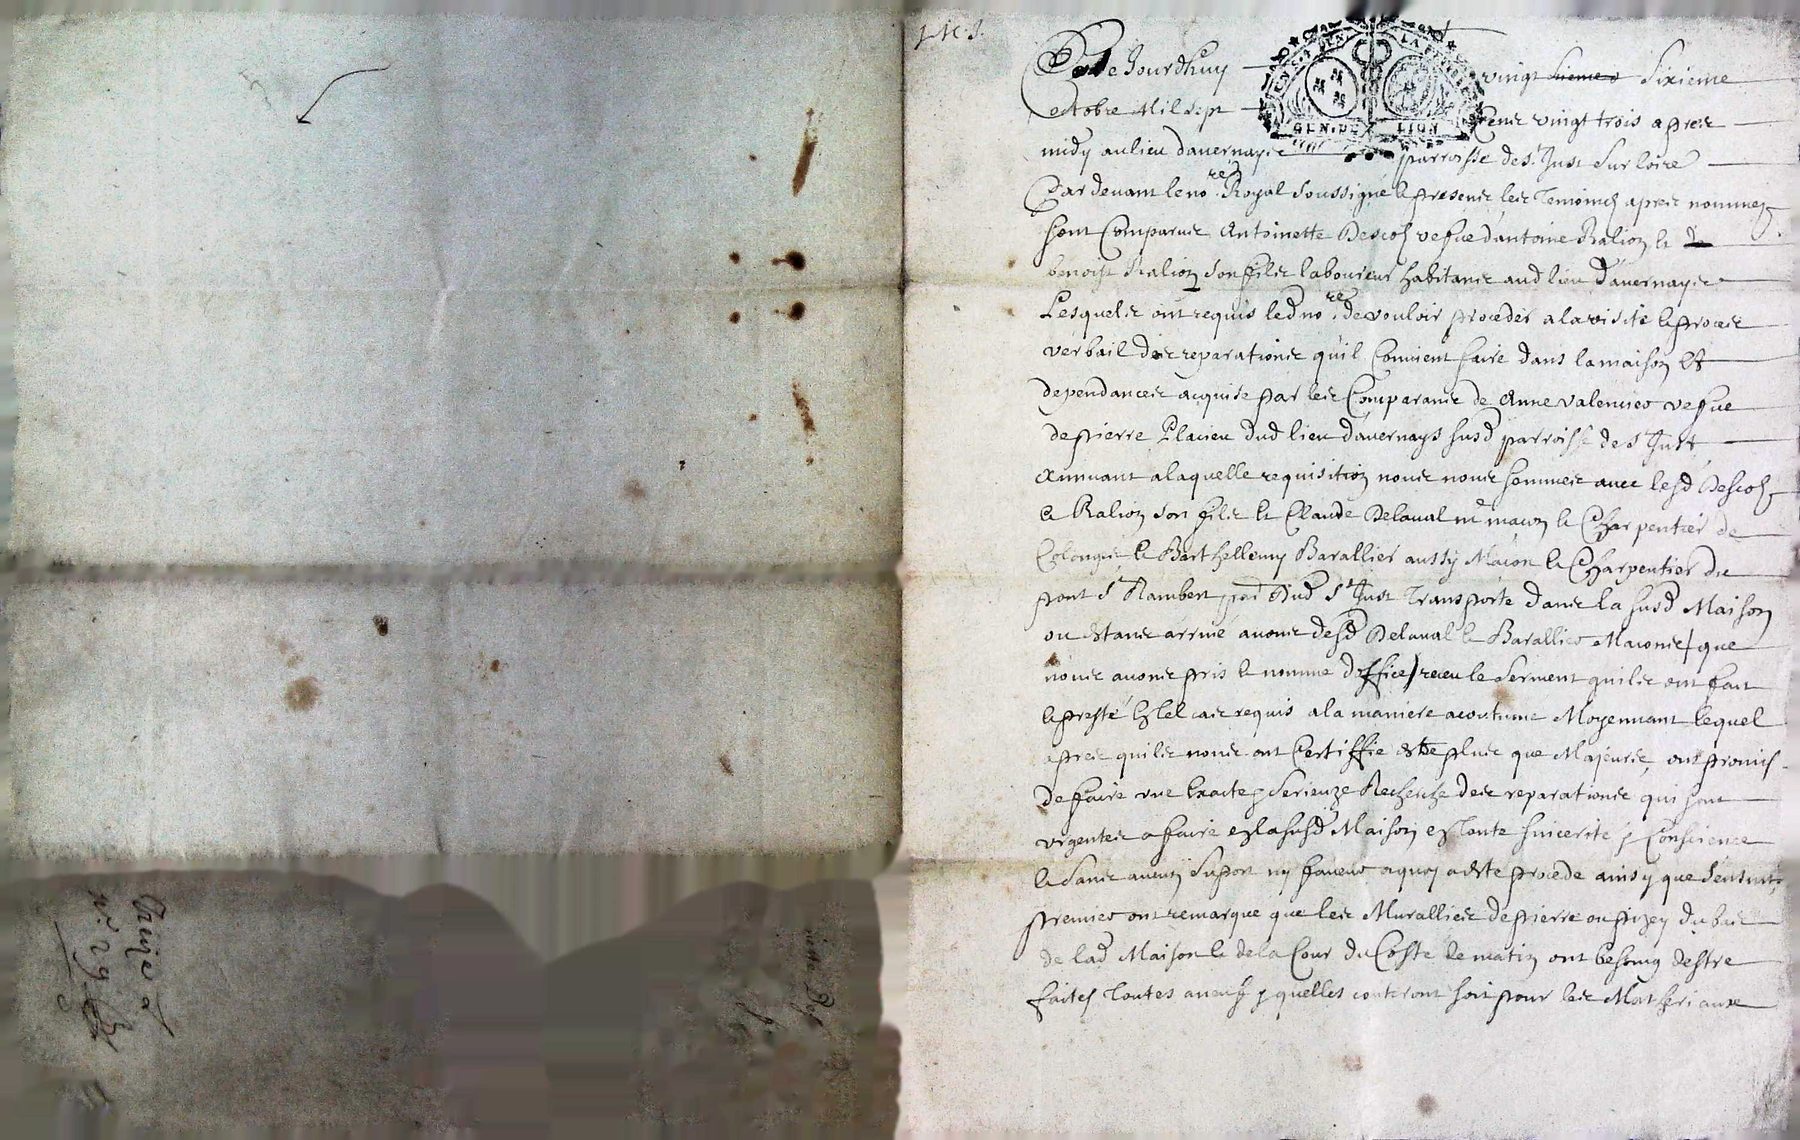 Ce Jourdhuy vingt sixieme
octobre Mil sept Cent vingt trois apres
midy au lieu dauernayes parroisse de st Just sur loire
Pardeuant le nore Royal soussigné & presents les temoins apres nommez
sont Comparus Antoinette Descos vefue dantoine Ralion &
benoist Ralion son fils laboureur habitants aud lieu dauernayes
Lesquels ont requis led nore de vouloir proceder a la visite & proces
verbail des reparations quil Conuient faire dans la maison Et
dependances acquise par les Comparants de Anne valencier vefue
de pierre Placieu dud lieu dauernays susd parroisse de st Just
a laquelle requisition nous nous sommes auec lesd Descos
& Ralion son fils & Claude Delaual me macon & Charpentier de
& Barthellemy Barallier aussy Macon & Charpentier du
pont st Rambert dud st Just Transporté dans la susd Maison
ou Estans arriué auons desd Delaual & Barallier Macons que
nous auons pris & nommé doffice receu le serment quils ont fait
& presté En tel cas requis a la maniere acoutumé Moyennant lequel
apres quils nous ont Certiffié Estre plus que Majeurs, ont promis
de faire vne Exacte & serieuze Recherche des reparations qui sont
vrgentes a faire en la susd Maison en toute sincerite & Conscience
& sans aucun suport ny faueur a quoy a este procedé ainsy que sensuit
premier ont remarque que les Murallies de pierre ou pizey du bas
de lad Maison & de la Cour du Costé de matin ont besoing destre
faites toutes a neuf & quelles couteront soit pour les Matheriaux